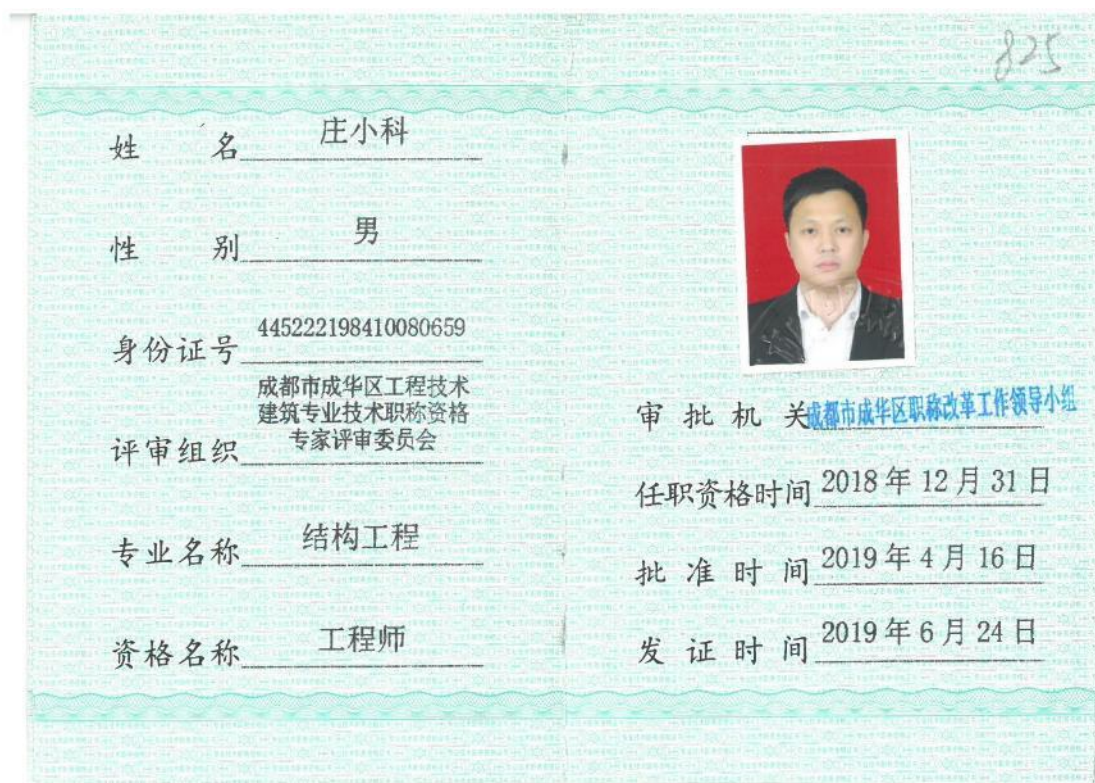 825
姓名 庄小科
性别 男
身份证号 445222198410080659
成都市成华区工程技术
建筑专业技术职称资格
评审组织 专家评审委员会
专业名称 结构工程
资格名称 工程师
审批机关 成都市成华区职称改革工作领导小组
任职资格时间 2018年12月31日
批准时间 2019年4月16日
发证时间 2019年6月24日